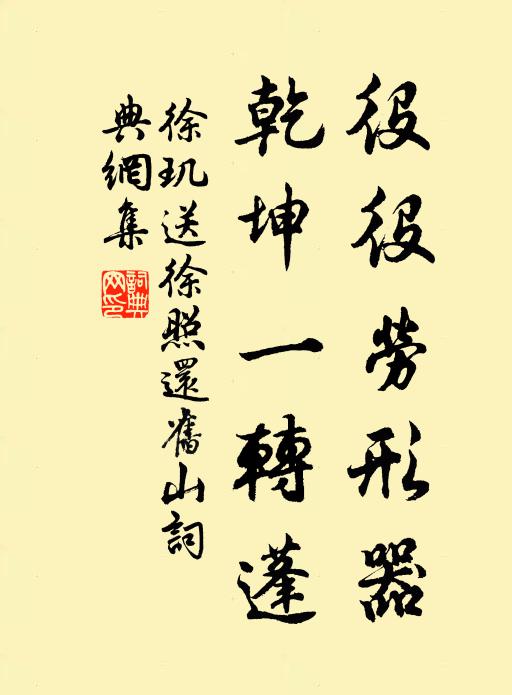 役役勞形器
乾坤一轉蓬
徐玑送徐照還舊山詞
典網集
詞典網印